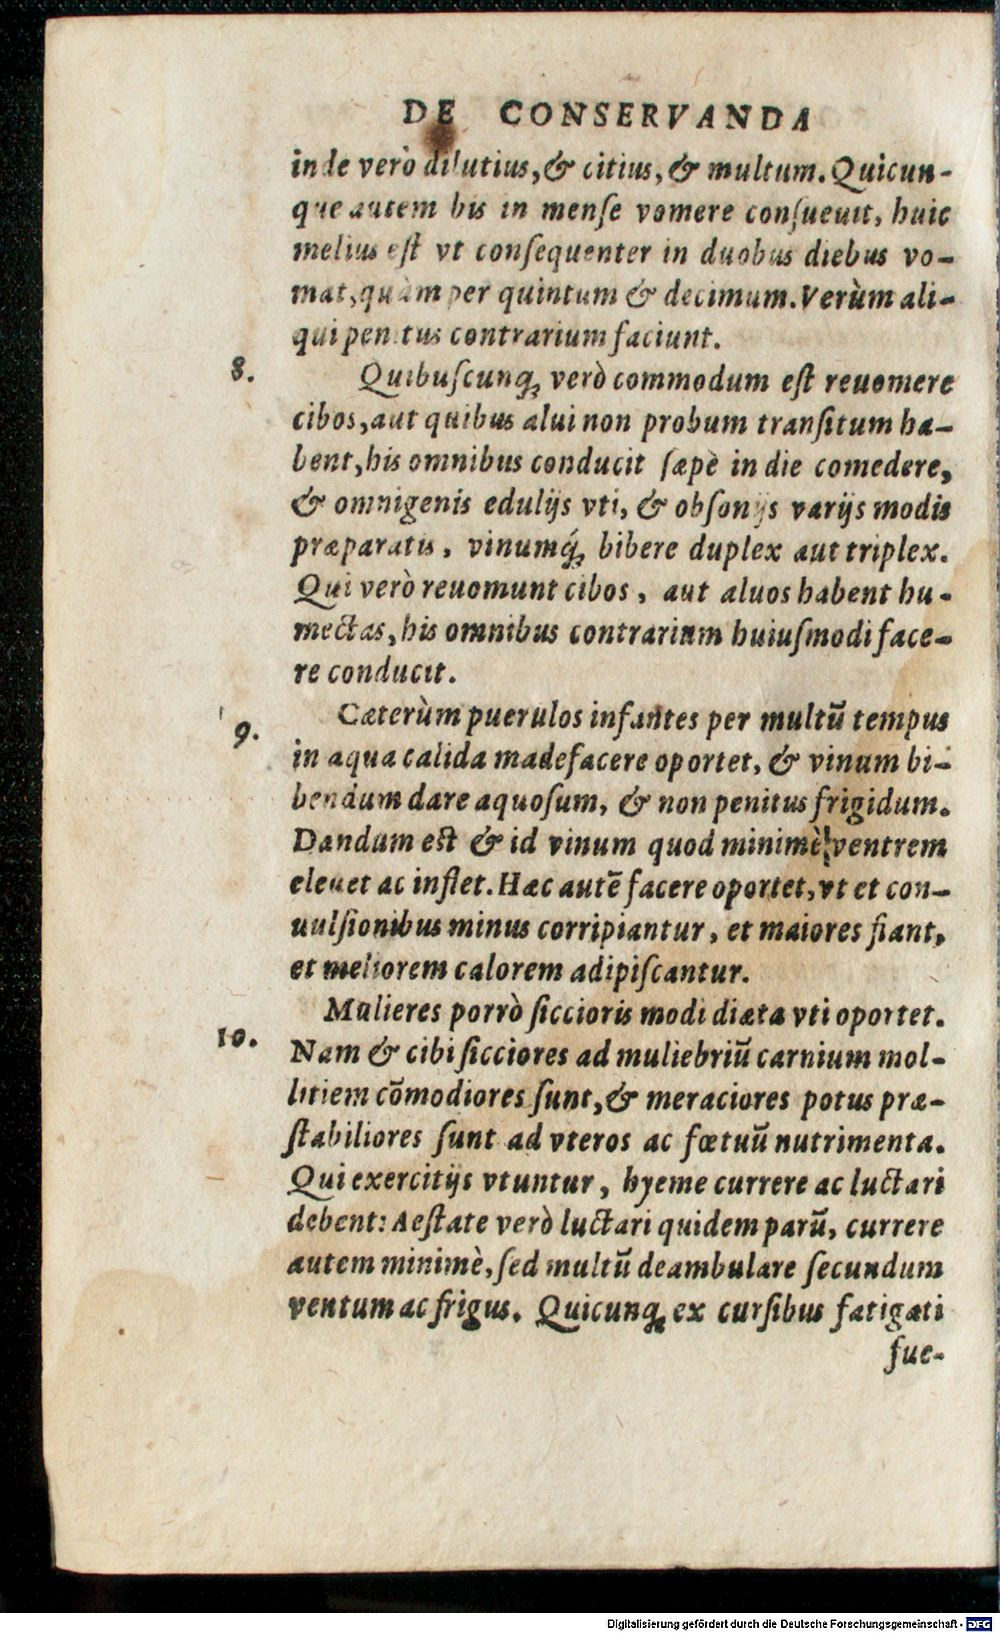 DE CONSERVANDA
inde verò dilutius, & citius, & multum. Quicun-
que autem bis in menſe vomere conſueuit, huic
melius eſt vt conſequenter in duobus diebus vo-
mat, quàm per quintum & decimum. Verùm ali-
qui penitus contrarium faciunt.
8.
Quibuſcunq; verò commodum eſt reuomere
cibos, aut quibus alui non probum tranſitum ha-
bent, his omnibus conducit ſæpè in die comedere,
& omnigenis edulijs vti, & obſonijs varijs modis
præparatis, vinumq́; bibere duplex aut triplex.
Qui verò reuomunt cibos, aut aluos habent hu-
mectas, his omnibus contrarium huiuſmodi face-
re conducit.
9.
Cæterùm puerulos infantes per multũ tempus
in aqua calida madefacere oportet, & vinum bi-
bendum dare aquoſum, & non penitus frigidum.
Dandum eſt & id vinum quod minimè ventrem
eleuet ac inflet. Hæc autẽ facere oportet, vt et con-
uulſionibus minus corripiantur, et maiores fiant,
et meliorem calorem adipiſcantur.
10.
Mulieres porrò ſiccioris modi diæta vti oportet.
Nam & cibi ſicciores ad muliebriũ carnium mol-
litiem cõmodiores ſunt, & meraciores potus præ-
ſtabiliores ſunt ad vteros ac fœtuũ nutrimenta.
Qui exercitijs vtuntur, hyeme currere ac luctari
debent: Aeſtate verò luctari quidem parũ, currere
autem minimè, ſed multũ deambulare ſecundum
ventum ac frigus. Quicunq; ex curſibus fatigati
fue-
Digitalisierung gefördert durch die Deutsche Forschungsgemeinschaft - DFG